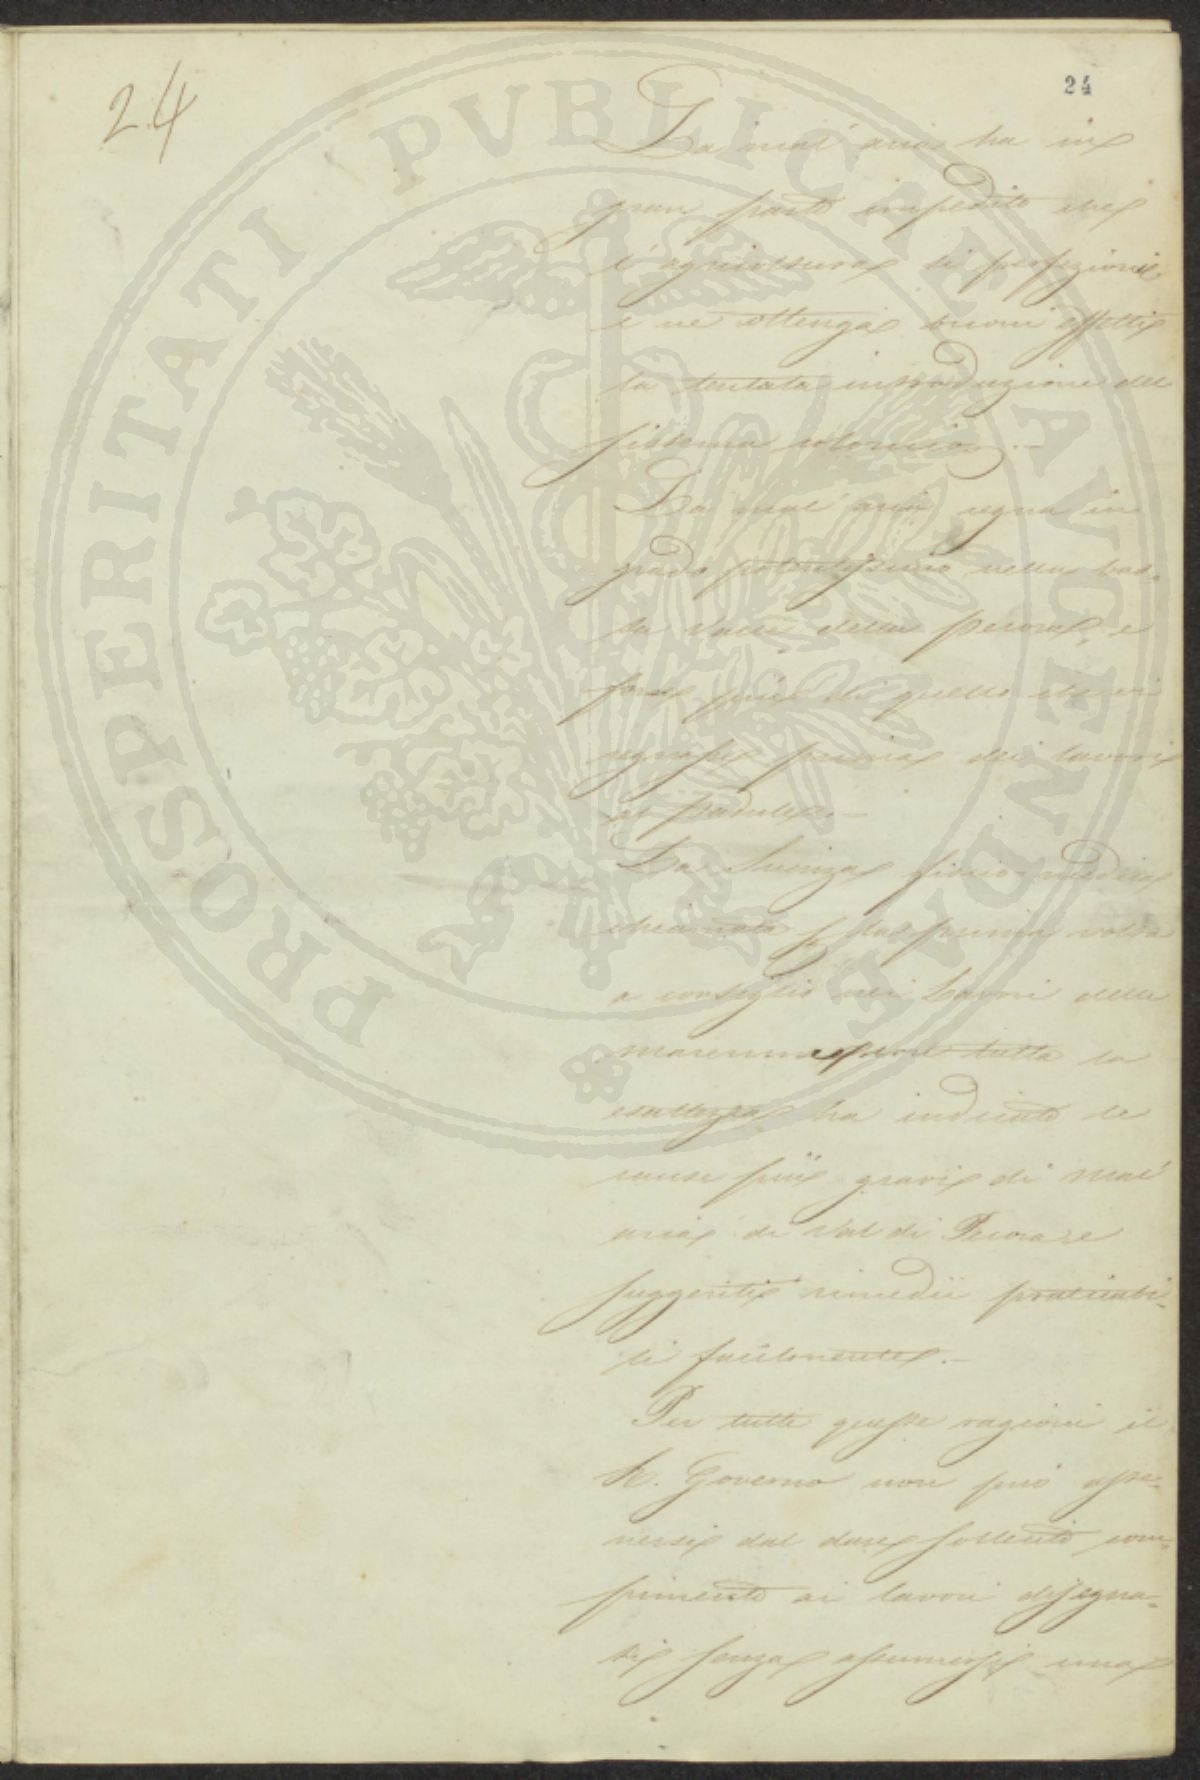 24
24
PROSPERITATI PVBLICAE AVGENDAE
La mal' aria ha in
gran parte impedito che
l'agricoltura si perfezioni
e ne ottenga buoni effetti
la tentata introduzione del
sistema colonico. –
La mal' aria regna in
grado potentissimo nella bas=
sa Valle della Pecora, e
forse più di quello che vi
regnasse prima dei lavori
al padule. –
La Scienza fisico-medica
chiamata la prima volta
a consiglio nei Lavori delle
maremme con tutta la
esattezza ha indicato le
cause più gravi di mal'
aria di Val di Pecora e
suggeriti rimedii praticabi=
li facilmente. –
Per tutte queste ragioni il
R. Governo non può aste=
nersi dal dare sollecito com=
pimento ai lavori disegna=
ti senza assumersi una